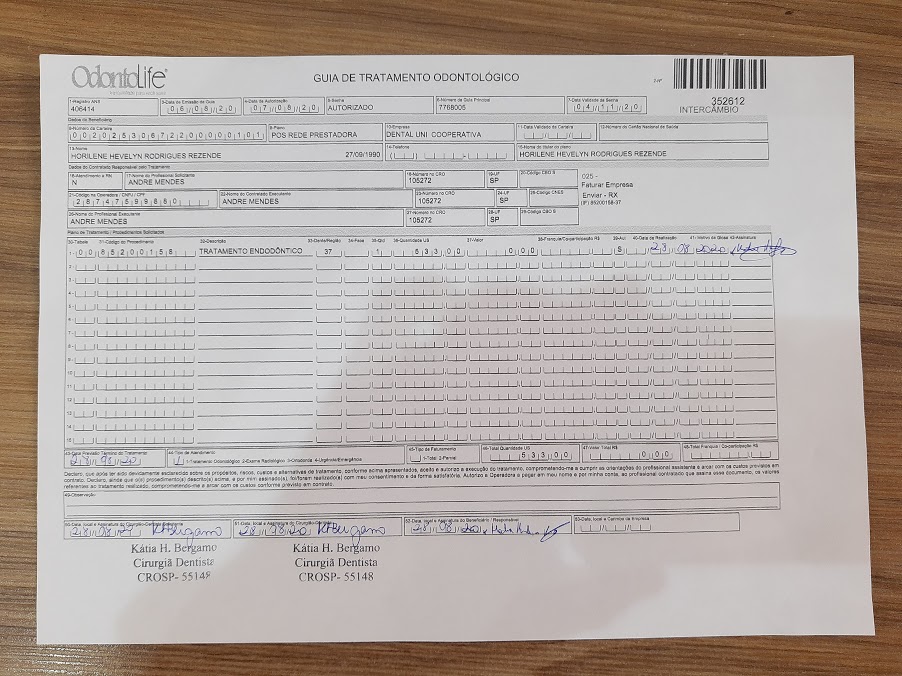 OdontoLife
GUIA DE TRATAMENTO ODONTOLÓGICO
2-Nº
352612
INTERCÂMBIO
1-Registro ANS
406414
3-Data de Emissão da Guia
06/08/20
4-Data da Autorização
07/08/20
5-Senha
AUTORIZADO
6-Número da Guia Principal
7768005
7-Data Validade da Senha
04/11/20
Dados do Beneficiário
8-Número da Carteira
00202530672200000101
9-Plano
POS REDE PRESTADORA
10-Empresa
DENTAL UNI COOPERATIVA
11-Data Validade da Carteira
12-Número do Cartão Nacional de Saúde
13-Nome
HORILENE HEVELYN RODRIGUES REZENDE 27/09/1990
14-Telefone
15-Nome do titular do plano
HORILENE HEVELYN RODRIGUES REZENDE
Dados do Contratado Responsável pelo Tratamento
16-Atendimento a RN
N
17-Nome do Profissional Solicitante
ANDRE MENDES
18-Número no CRO
105272
19-UF
SP
20-Código CBO S
025 -
Faturar Empresa
Enviar - RX
21-Código na Operadora / CNPJ / CPF
28747599860
22-Nome do Contratado Executante
ANDRE MENDES
23-Número no CRO
105272
24-UF
SP
25-Código CNES
26-Nome do Profissional Executante
ANDRE MENDES
27-Número no CRO
105272
28-UF
SP
29-Código CBO S
Plano de Tratamento / Procedimentos Solicitados
30-Tabela 31-Código do Procedimento 32-Descrição 33-Dente/Região 34-Face 35-Qtd 36-Quantidade US 37-Valor 38-Franquia/Co-participação R$ 39-Aut 40-Data de Realização 41-Motivo da Glosa 42-Assinatura
1- 00 65200158 TRATAMENTO ENDODÔNTICO 37 1 533,00 0,00 S 23/08/2020
2-
3-
4-
5-
6-
7-
8-
9-
10-
11-
12-
13-
14-
15-
43-Data Previsão Término do Tratamento
28/08/20
44-Tipo de Atendimento
1-Tratamento Odontológico 2-Exame Radiológico 3-Ortodontia 4-Urgência/Emergência
45-Tipo de Faturamento
1-Total 2-Parcial
46-Total Quantidade US
533,00
47-Valor Total R$
0,00
48-Total Franquia / Co-participação R$
Declaro, que após ter sido devidamente esclarecido sobre os propósitos, riscos, custos e alternativas de tratamento, conforme acima apresentados, aceito e autorizo a execução do tratamento, comprometendo-me a cumprir as orientações do profissional assistente e arcar com os custos previstos em
contrato. Declaro, ainda que o(s) procedimento(s) descrito(s) acima, e por mim assinado(s), foi/foram realizado(s) com meu consentimento e de forma satisfatória. Autorizo a Operadora a pagar em meu nome e por minha conta, ao profissional contratado que assina esse documento, os valores
referentes ao tratamento realizado, comprometendo-me a arcar com os custos conforme previsto em contrato.
49-Observação
50-Data, local e Assinatura do Cirurgião-Dentista Solicitante
28/08/20 KHBergamo
51-Data, local e Assinatura do Cirurgião-Dentista
28/08/20 KHBergamo
52-Data, local e Assinatura do Beneficiário / Responsável
28/08/20
53-Data, local e Carimbo da Empresa
Kátia H. Bergamo
Cirurgiã Dentista
CROSP- 55148
Kátia H. Bergamo
Cirurgiã Dentista
CROSP- 55148